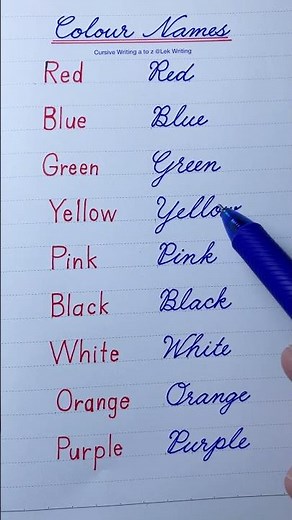 Colour Names
Cursive Writing a to z @Lek Writing
Red Red
Blue Blue
Green Green
Yellow Yellow
Pink Pink
Black Black
White White
Orange Orange
Purple Purple